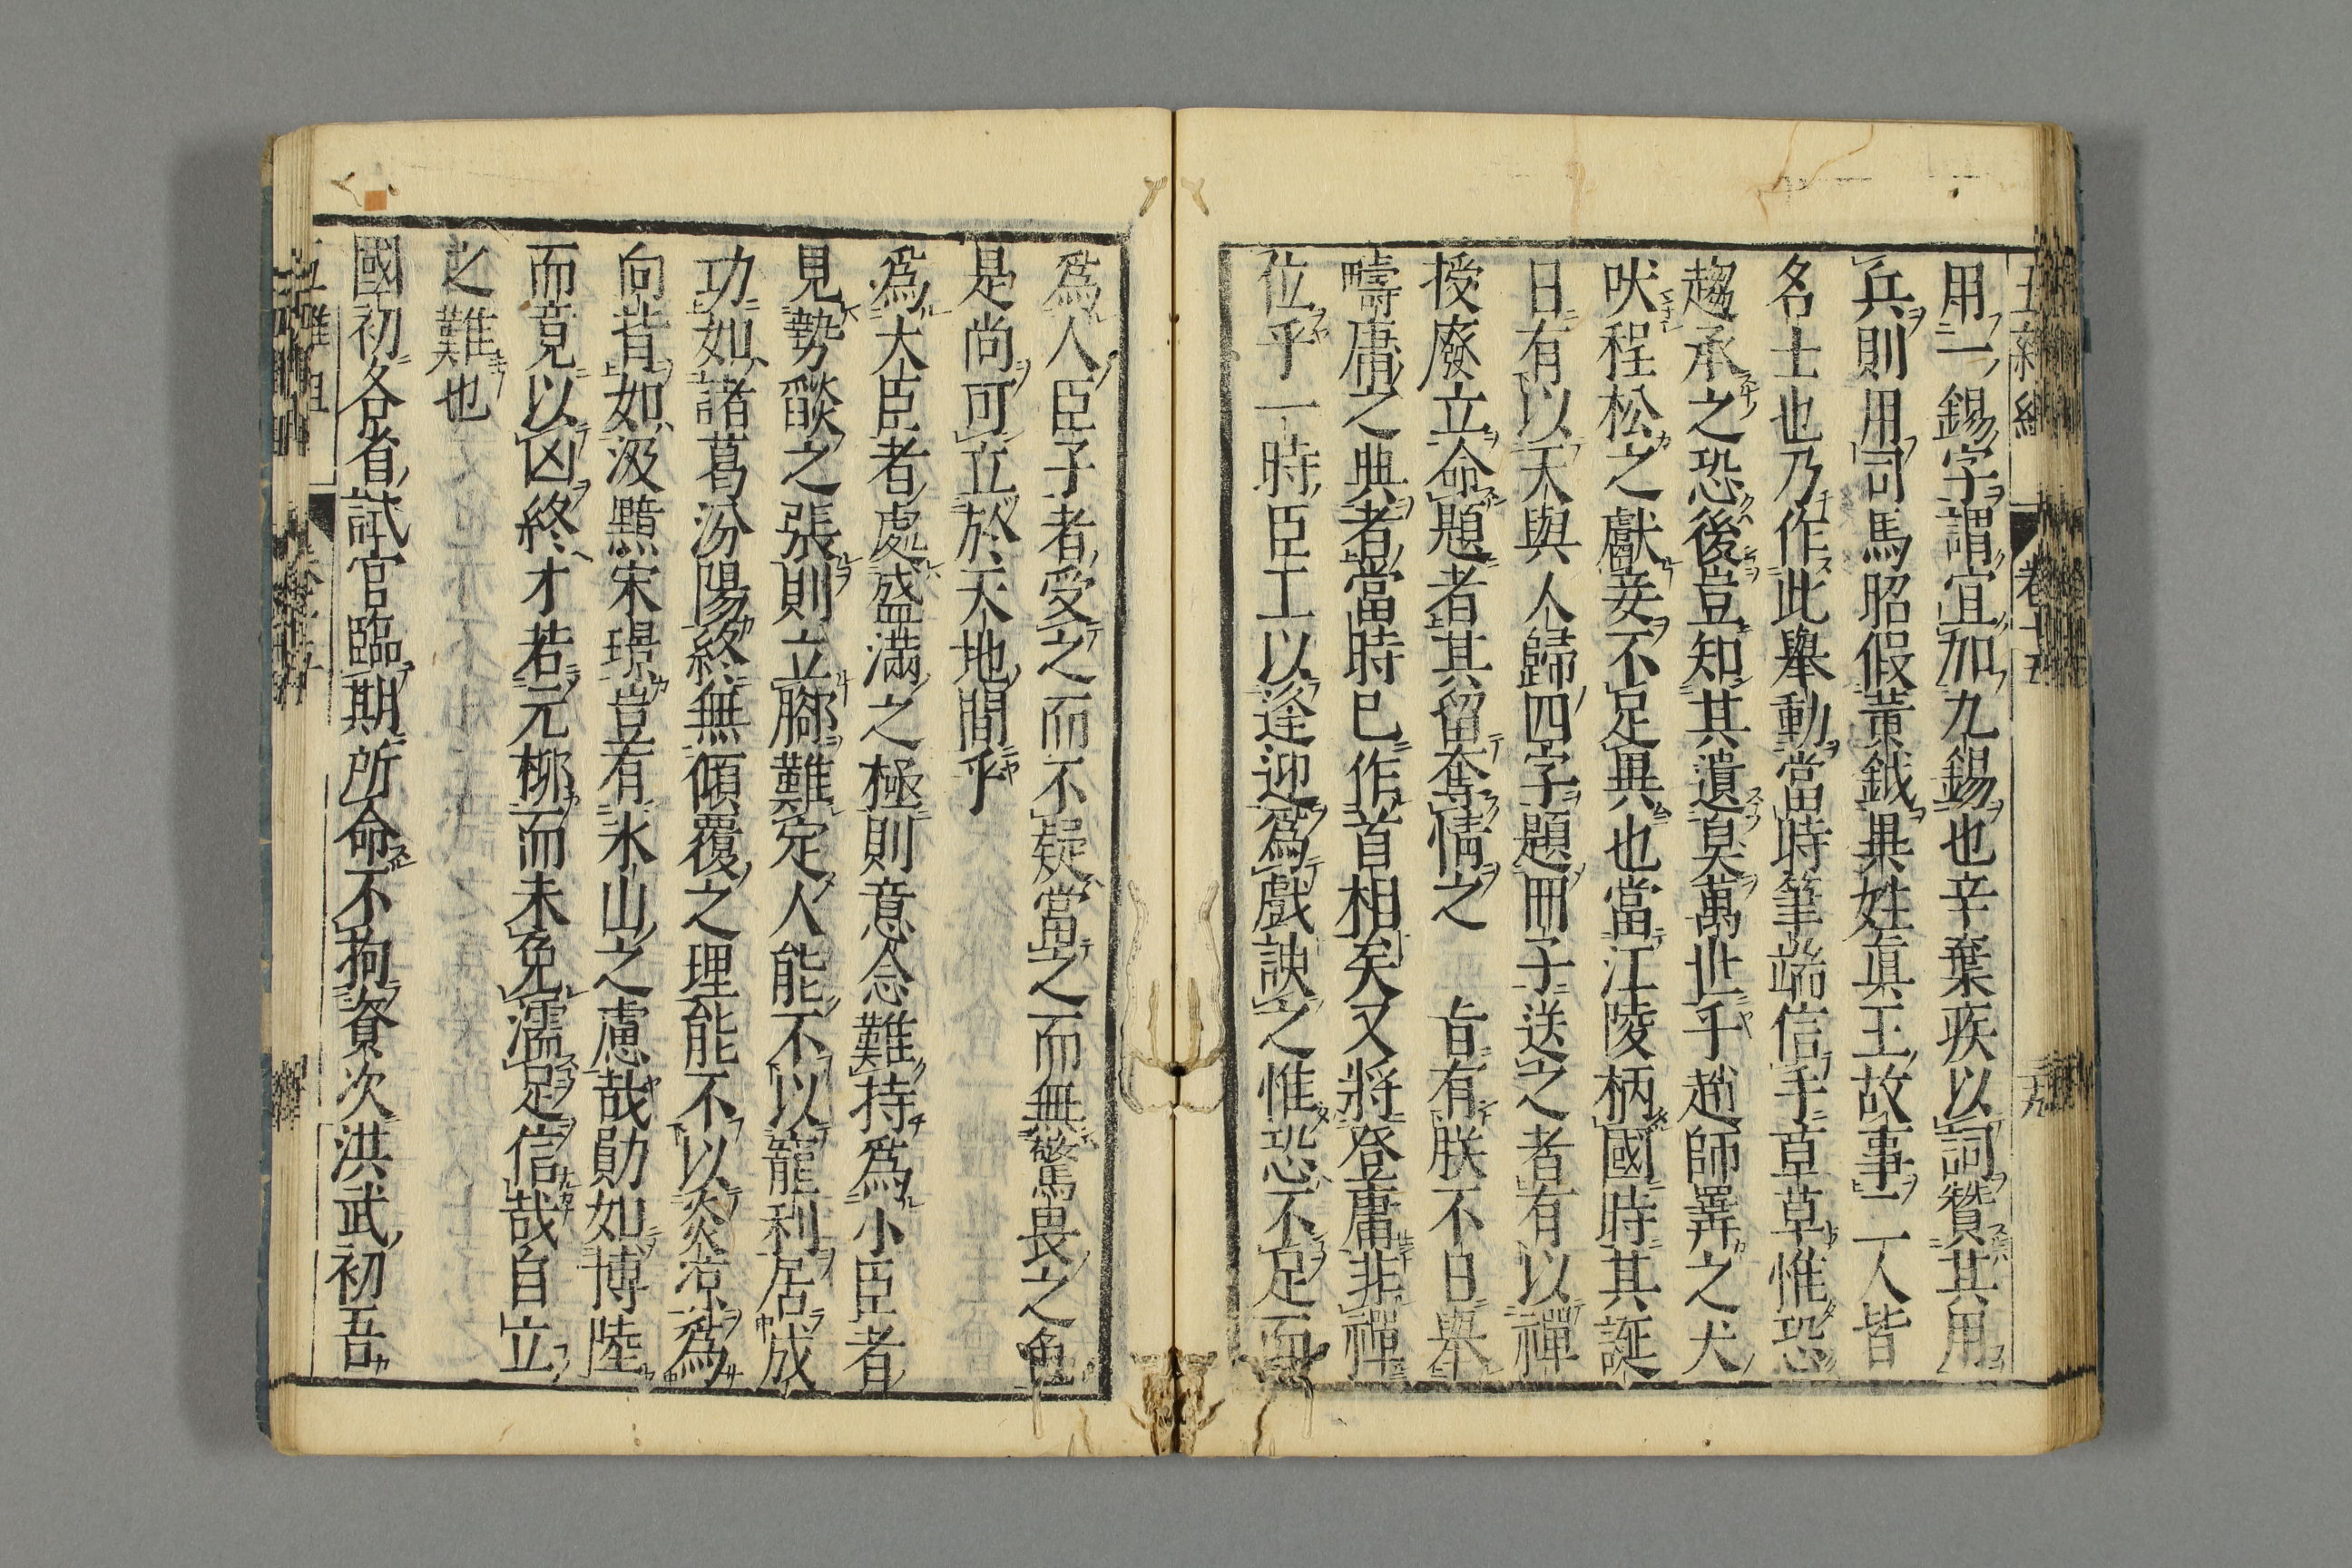 用一錫字謂宜加九錫也辛棄疾以詞贊其用
兵則用司馬昭假黃鉞異姓真王故事二人皆
名士也乃作此舉動當時筆端信手草草惟恐
趨承之恐後豈知其遺臭萬世乎趙師㢸之犬
吠程松之獻妾不足異也當江陵柄國時其誕
日有以天與人歸四字題冊子送之者有以禪
授廢立命題者其留奪情之 旨有朕不日舉
疇庸之典者當時已作首相矣又將登庸非禪
位乎一時臣工以逢迎為戲諛之惟恐不足而
為人臣子者受之而不疑當之而無驚畏之色
是尚可立於天地間乎
為大臣者處盛滿之極則意念難持為小臣者
見勢燄之張則立腳難定人能不以寵利居成
功如諸葛汾陽終無傾覆之理能不以炎涼為
向背如汲黯宋璟豈有氷山之慮哉勛如博陸
而竟以凶終才若元柳而未免濡足信哉自立
之難也
國初各省試官臨期所命不拘資次洪武初吾